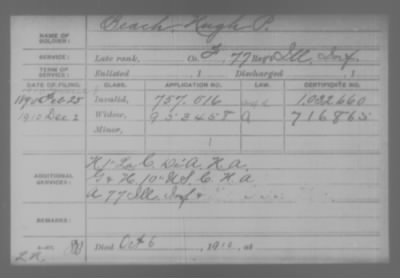 NAME OF SOLDIER: Beach, Hugh P.
SERVICE: Late rank, Co. F, 77 Reg't Ill. Inf.
TERM OF SERVICE: Enlisted , 1 Discharged , 1
DATE OF FILING. CLASS. APPLICATION NO. LAW. CERTIFICATE NO.
25 Invalid, 757.016 1,032,660
1910 Dec 2 Widow, 953458 A 716865
Minor,
1
ADDITIONAL SERVICES:
H. A.
G & H. 10" U.S. C. H. A
A 77 Ill. Inf
REMARKS:
Died Oct 6 , 1910, at